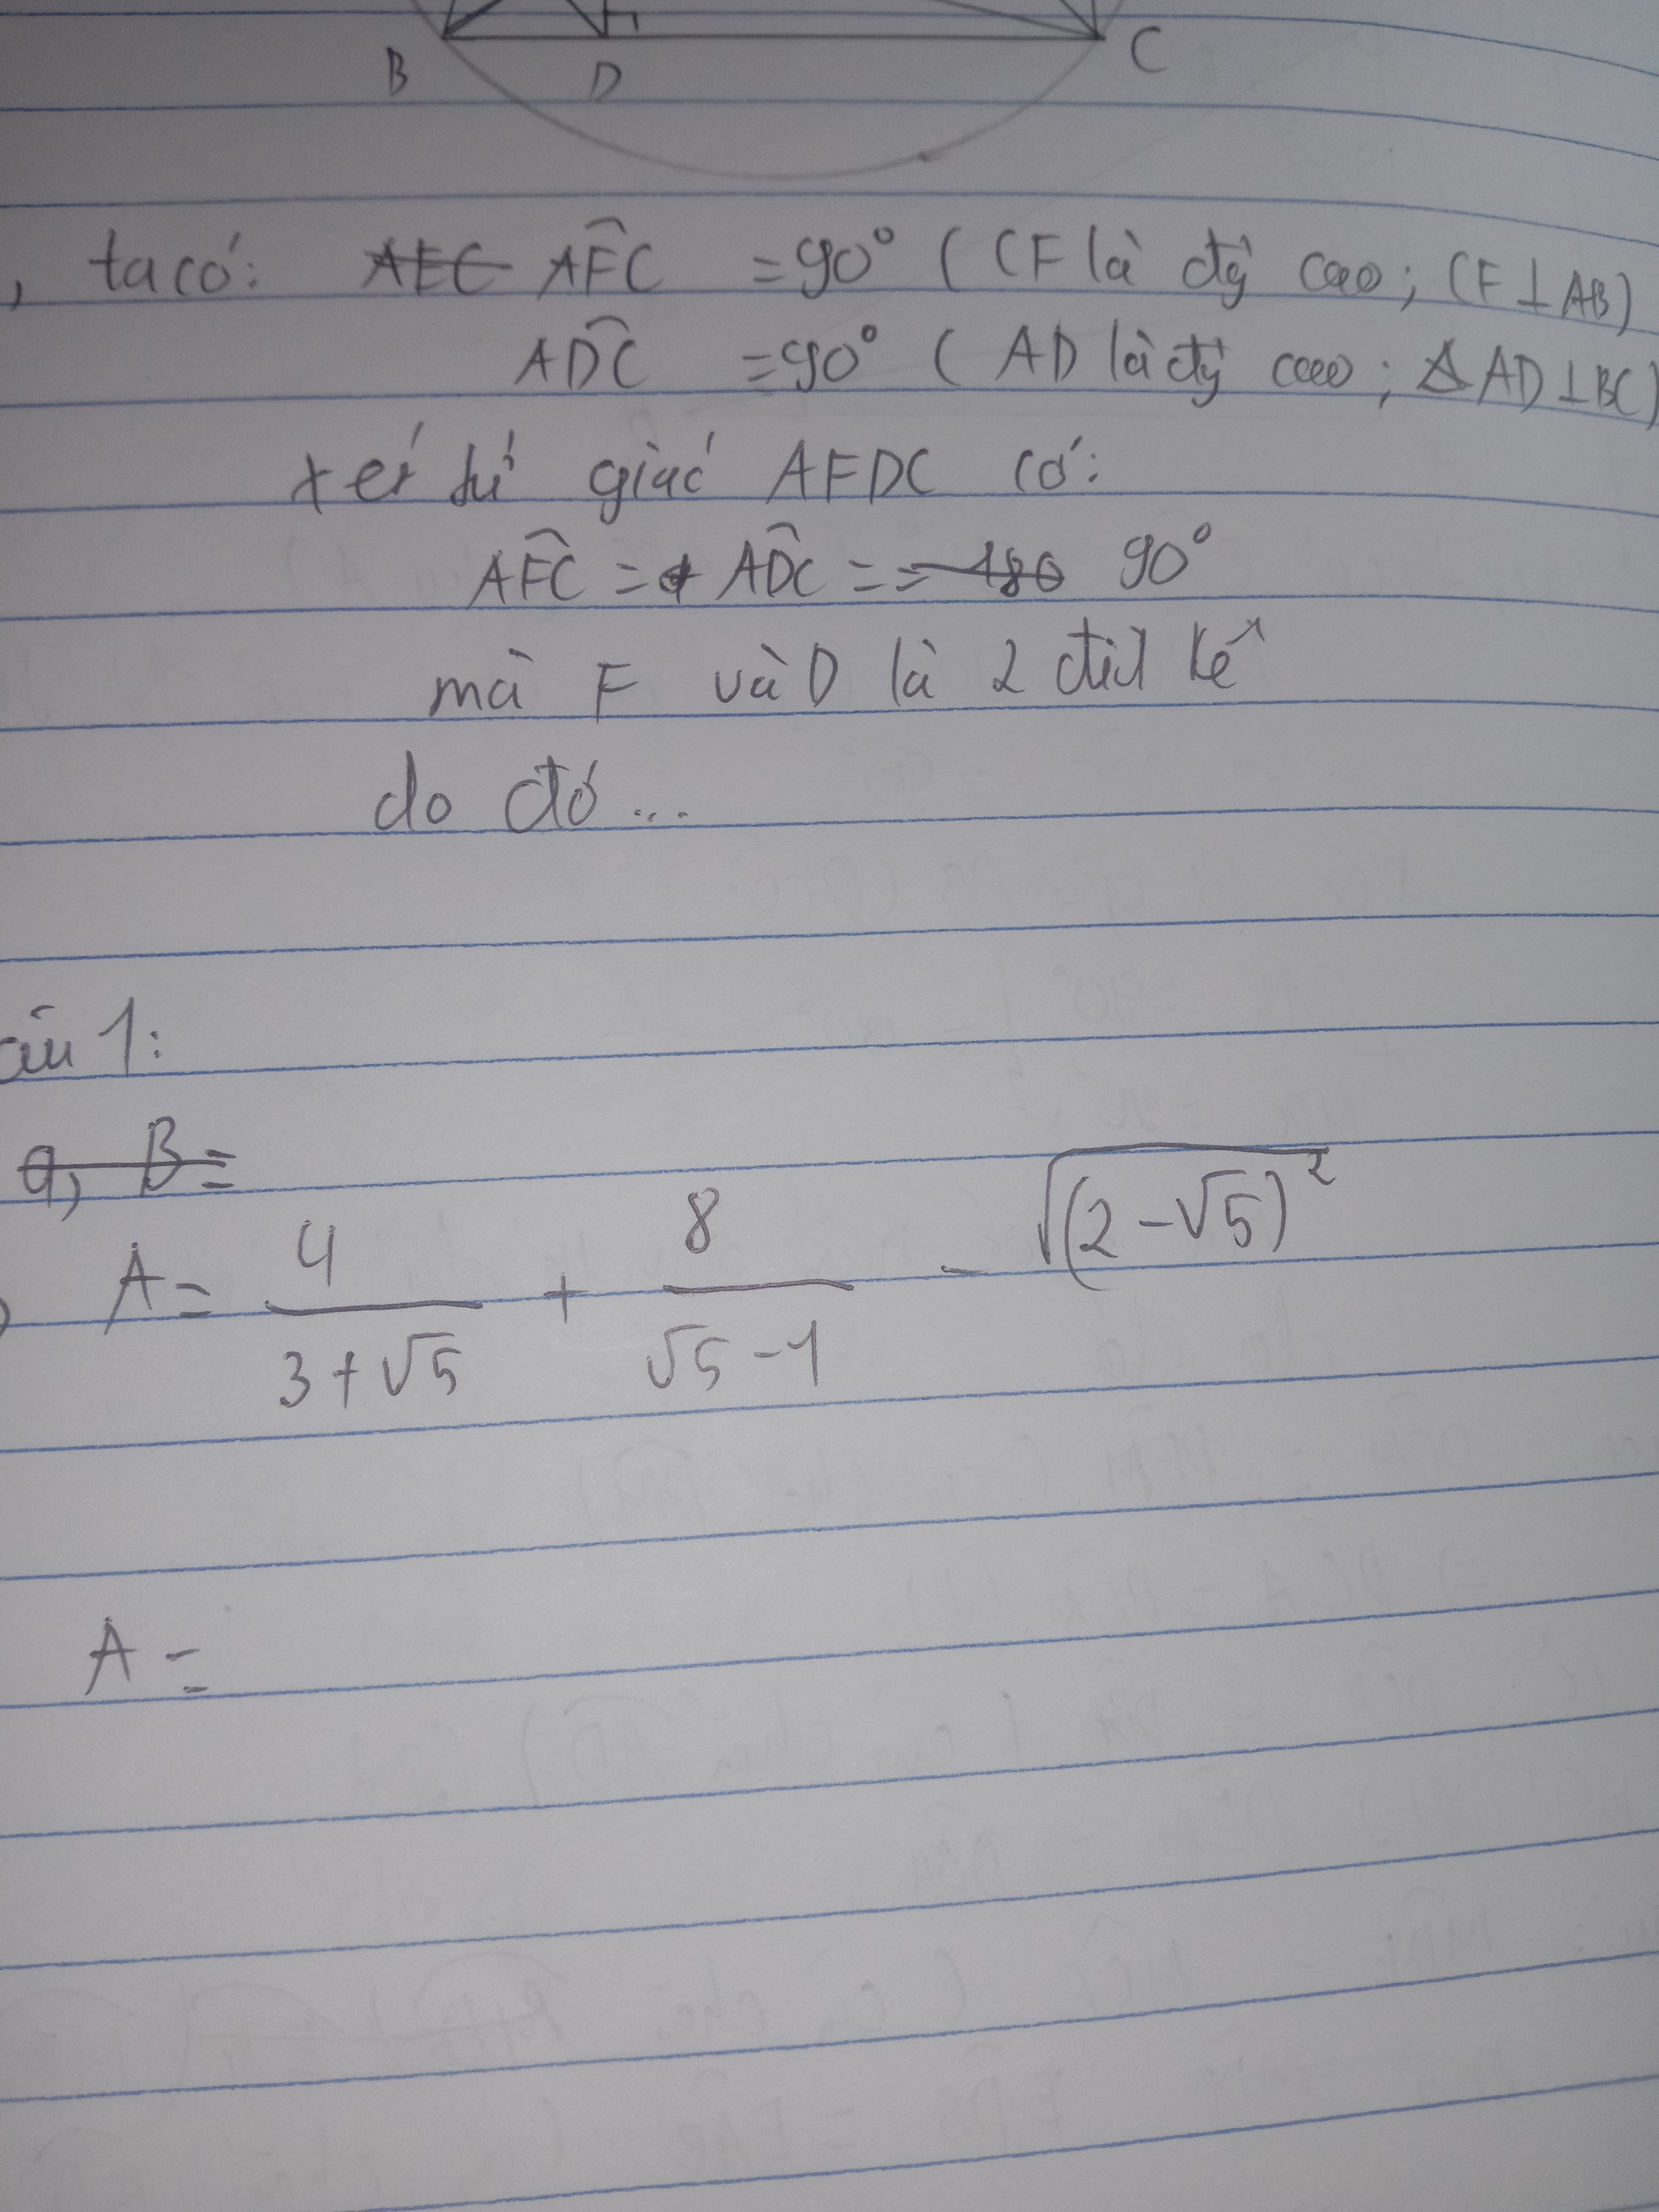 B D C
, ta có: AEC AFC = 90° ( CF là đg cao ; CF ⊥ AB )
ADC = 90° ( AD là đg cao ; AD ⊥ BC )
xét tứ giác AFDC có:
AFC = ADC = = 180 90°
mà F và D là 2 đỉnh kề
do đó ...
âu 1:
a, B =
A = 4/(3+√5) + 8/(√5-1) - √((2-√5)²)
A =